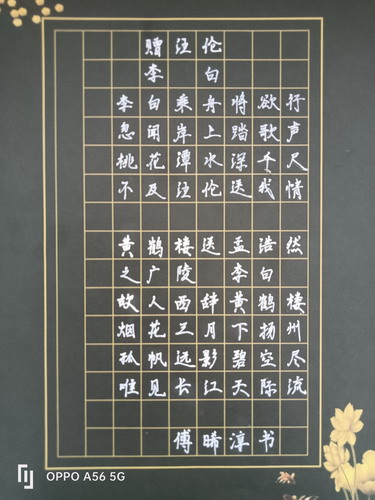 赠汪伦
李白
李白乘舟将欲行
忽闻岸上踏歌声
桃花潭水深千尺
不及汪伦送我情
黄鹤楼送孟浩然
之广陵 李白
故人西辞黄鹤楼
烟花三月下扬州
孤帆远影碧空尽
唯见长江天际流
傅晞淳书
OPPO A56 5G